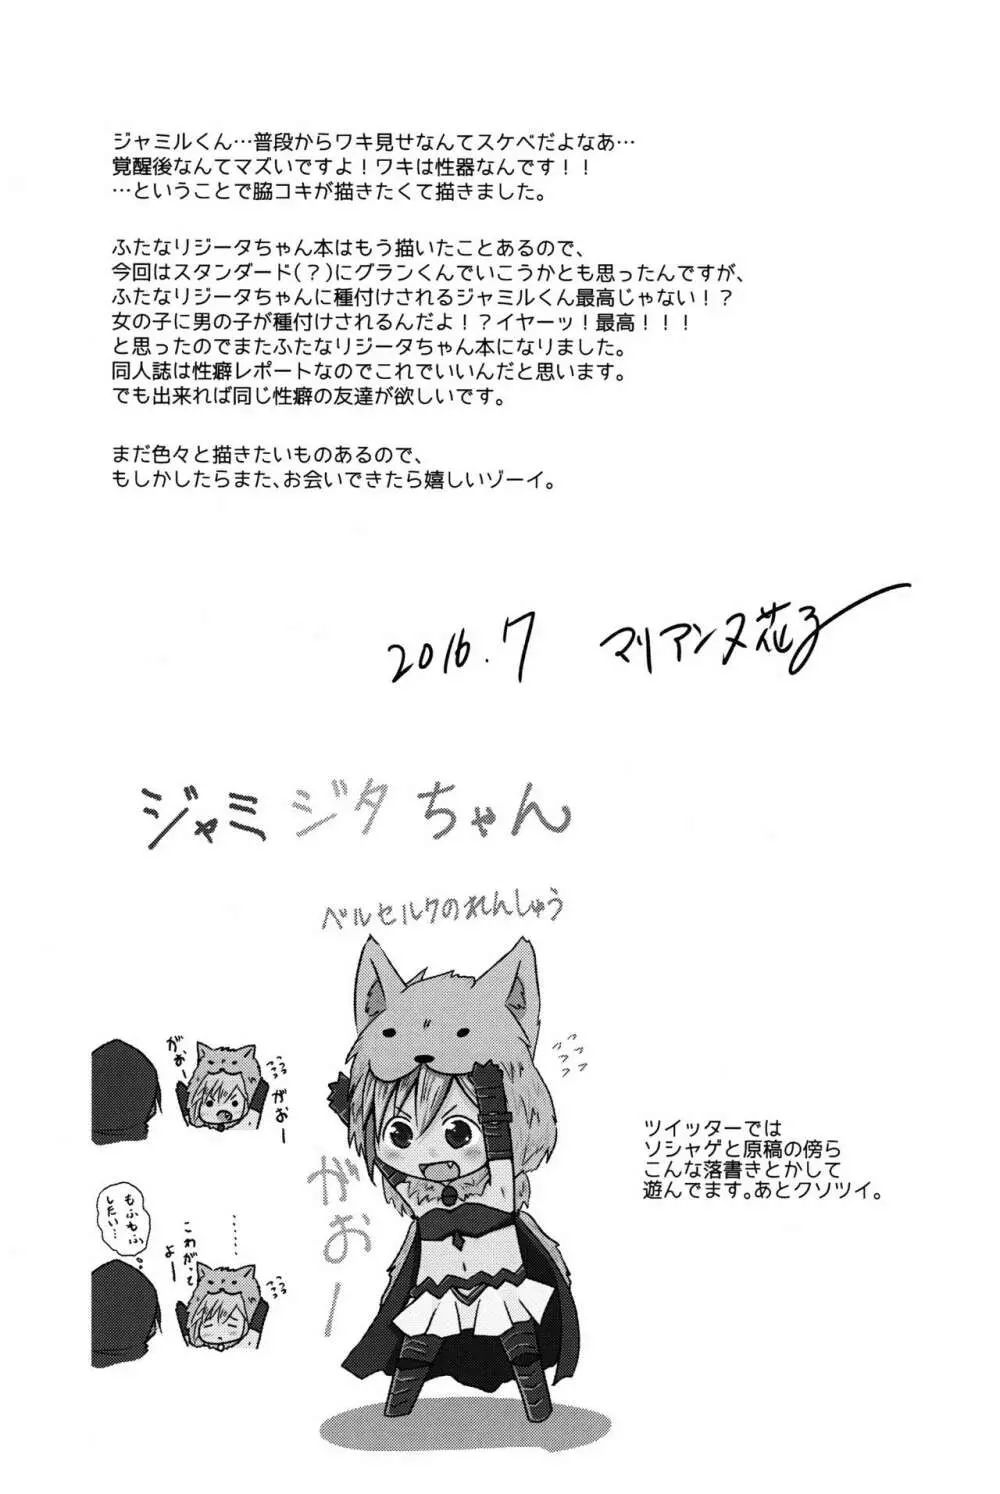 ジャミルくん…普段からワキ見せなんてスケベだよなあ…
覚醒後なんてマズいですよ！ワキは性器なんです！！
…ということで脇コキが描きたくて描きました。
ふたなりジータちゃん本はもう描いたことあるので、
今回はスタンダード(？)にグランくんでいこうかとも思ったんですが、
ふたなりジータちゃんに種付けされるジャミルくん最高じゃない！？
女の子に男の子が種付けされるんだよ！？イヤーッ！最高！！！
と思ったのでまたふたなりジータちゃん本になりました。
同人誌は性癖レポートなのでこれでいいんだと思います。
でも出来れば同じ性癖の友達が欲しいです。
まだ色々と描きたいものあるので、
もしかしたらまた、お会いできたら嬉しいゾーイ。
2016.7 マリアンヌ花子
ジャミジタちゃん
ベルセルクのれんしゅう
がおー
がおー
がおー
フフフフ
フフフ
もふもふ
したい…
……
こわがって
よー
フフフ
ツイッターでは
ソシャゲと原稿の傍ら
こんな落書きとかして
遊んでます。あとクソツイ。